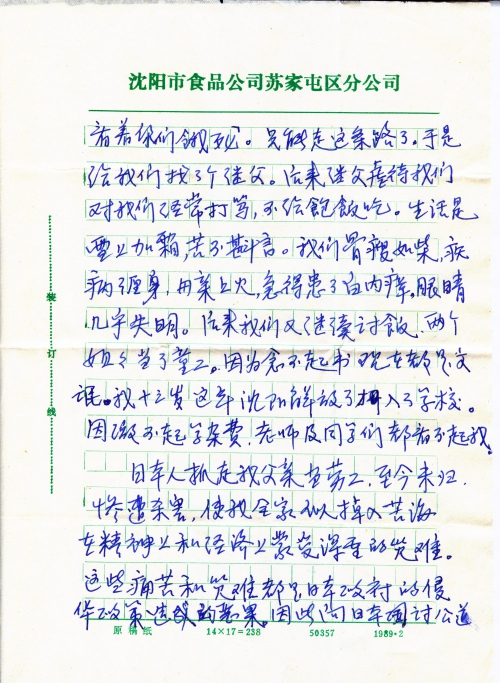 沈阳市食品公司苏家屯区分公司
看着你们饿死。只能走这条路了。于是
给我们找了个继父。后来继父虐待我们
对我们经常打骂，不给飽飯吃。生活是
雪上加霜，苦不斟言。我们骨瘦如柴，疾
病缠身，母亲上火，急得患了白内瘴。眼睛
几乎失明。后来我们又继续讨飯，两个
姐姐当了童工。因为念不起书现在都是文
盲。我十三岁这年沈阳解放了才入了学校。
因缴不起学杂费，老师及同学们都看不起我。
日本人抓走我父亲当劳工，至今未归，
惨遭杀害，使我全家人掉入苦海
在精神上和经济上蒙受深重的災难。
这些痛苦和災难都是日本政府的侵
华政策造成的恶果。因此向日本国讨公道
装订线
原稿纸 14×17=238 50357 1989·2